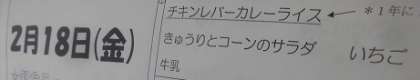 チキンレバーカレーライス ← *1年に
2月18日(金)
きゅうりとコーンのサラダ いちご
牛乳